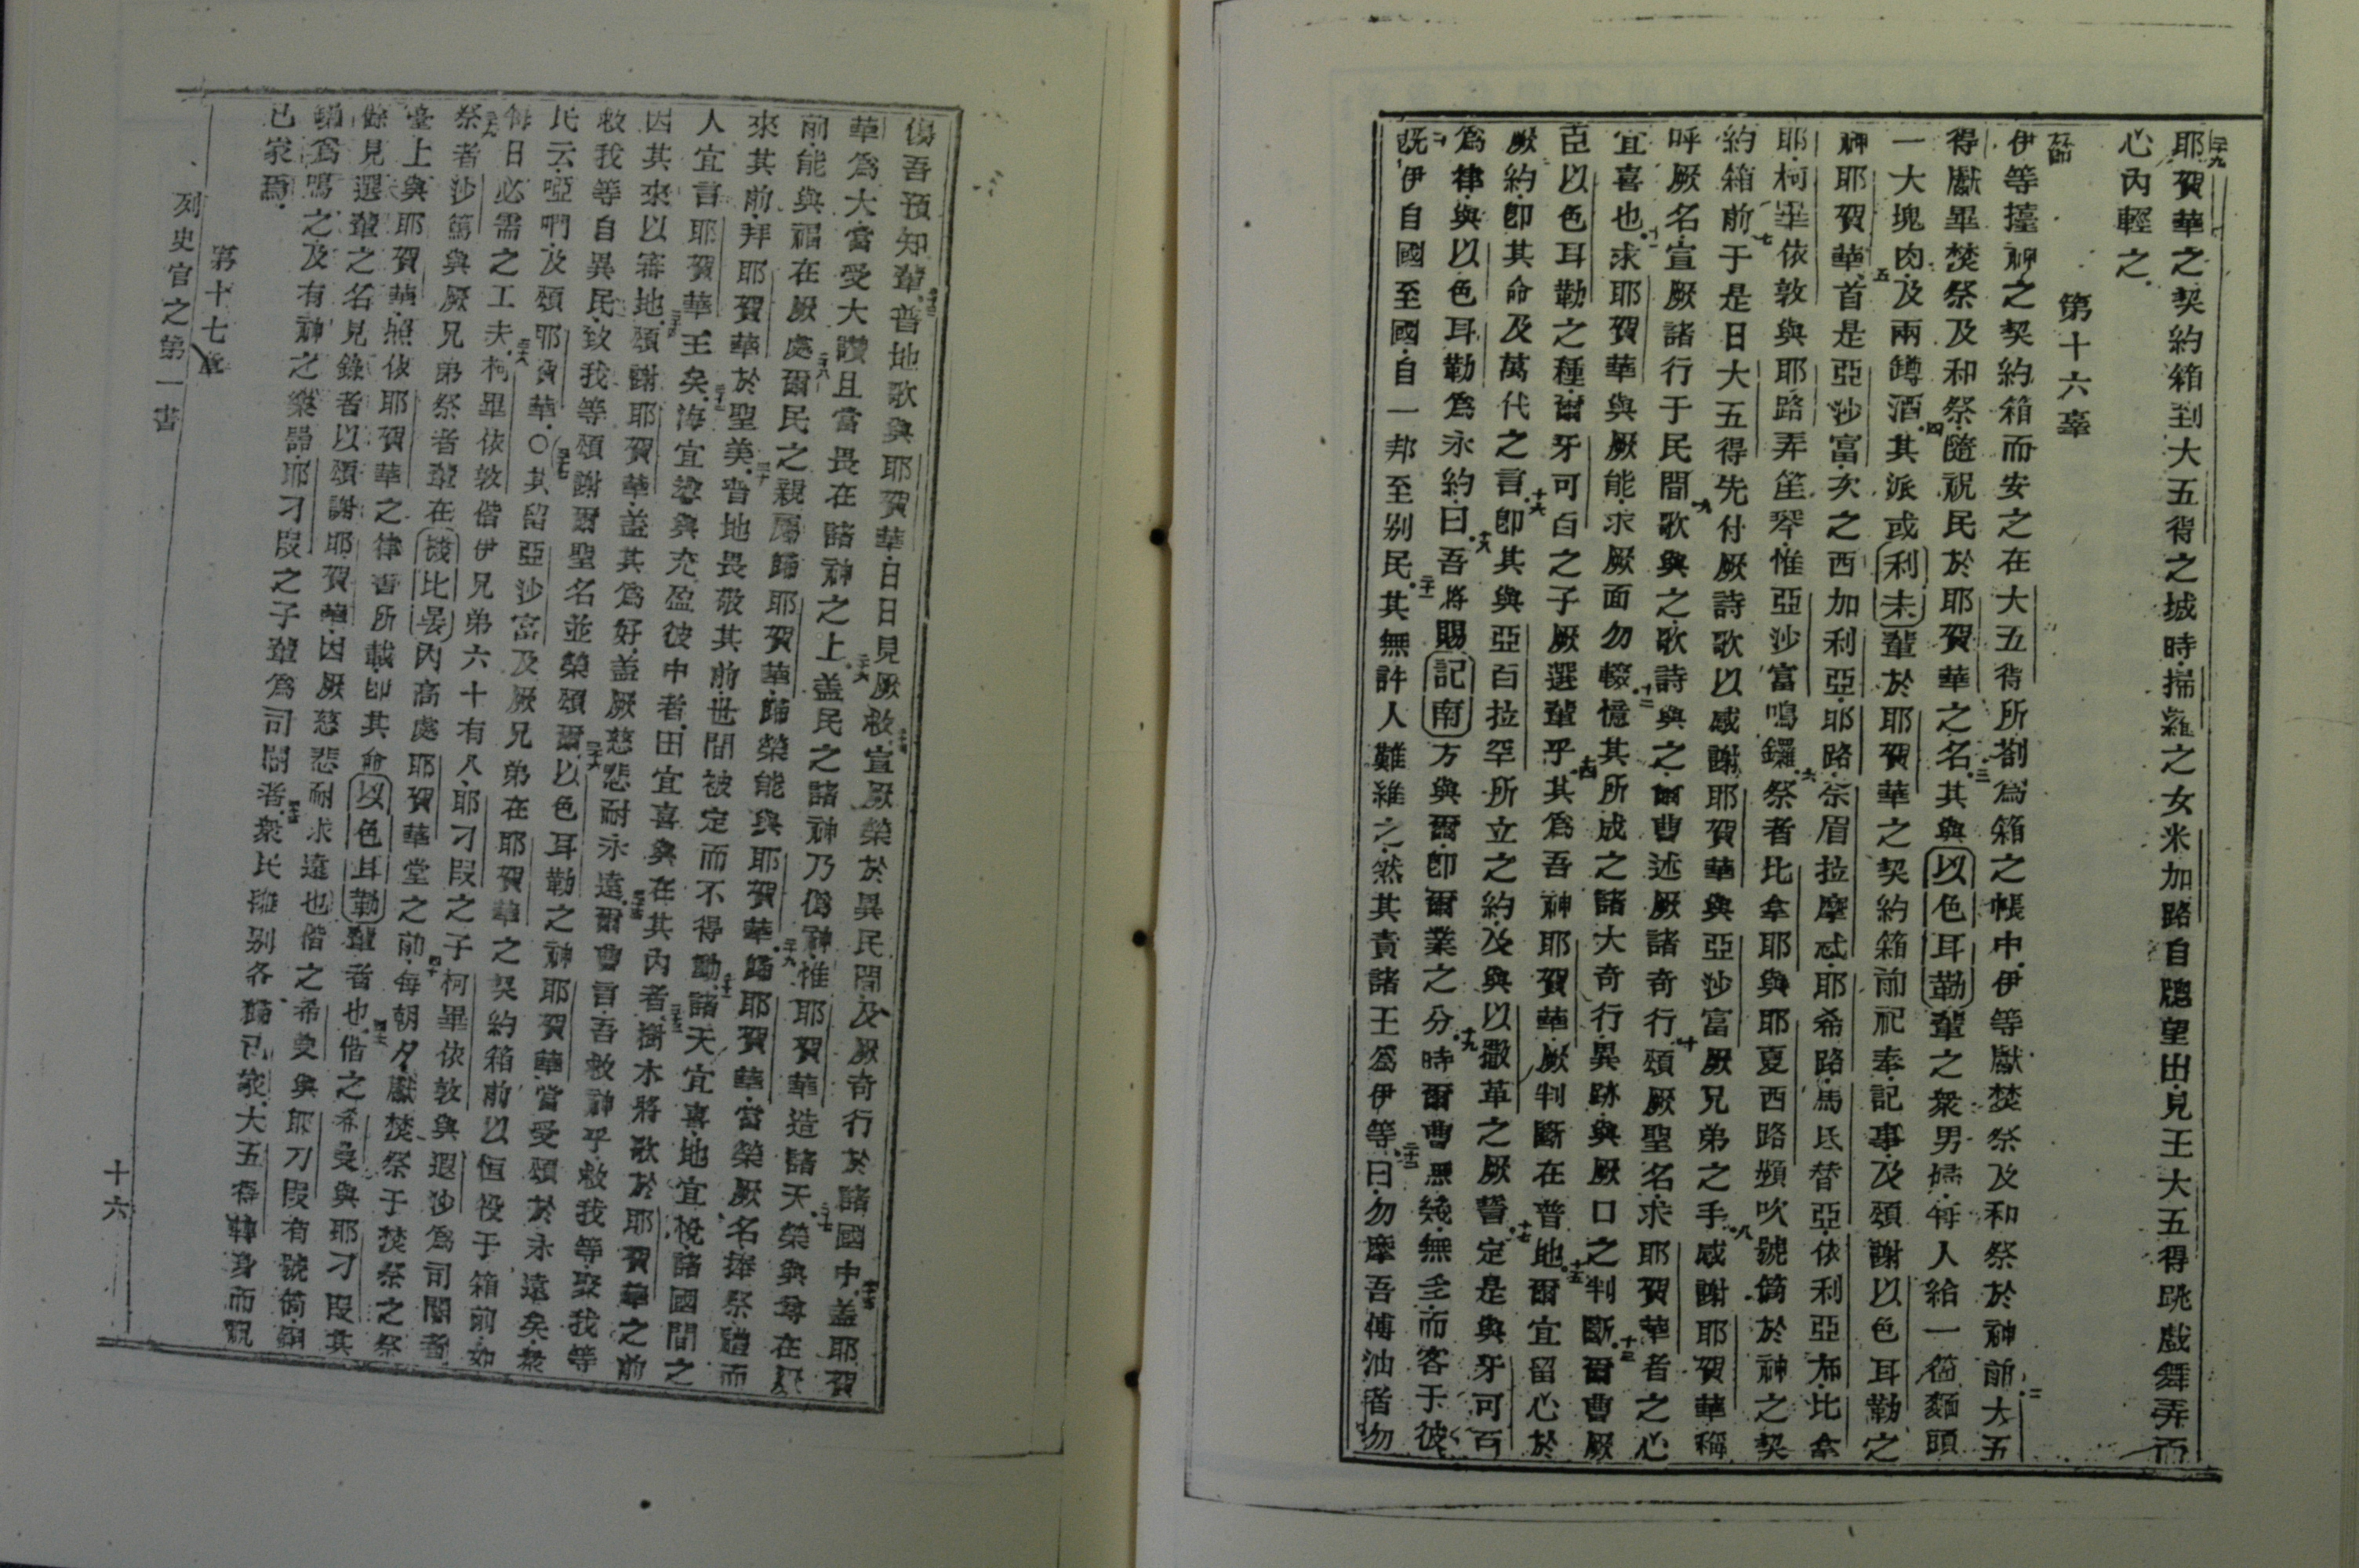 耶賀華之契約箱到大五得之城時掃羅之女米加路自牕望出見王大五得跳戲舞弄而
心內輕之
第十六章
伊等擡神之契約箱而安之在大五得所劄爲箱之帳中伊等獻焚祭及和祭於神前大五
得獻畢焚祭及和祭隨祝民於耶賀華之名其與以色耳勒輩之衆男婦每人給一箇麵頭
一大塊肉及兩罇酒其派或利未輩於耶賀華之契約箱前祀奉記事及頌謝以色耳勒之
神耶賀華首是亞沙富次之西加利亞耶路宗眉拉摩忒耶希路馬氐替亞依利亞布比拿
耶柯畢依敦與耶路弄笙琴惟亞沙富鳴鑼祭者比拿耶與耶夏西路頻吹號筒於神之契
約箱前于是日大五得先付厥詩歌以感謝耶賀華與亞沙富厥兄弟之手感謝耶賀華稱
呼厥名宣厥諸行于民間歌與之歌詩與之爾曹述厥諸奇行頌厥聖名求耶賀華者之心
宜喜也求耶賀華與厥能求厥面勿輟憶其所成之諸大奇行異跡與厥口之判斷爾曹厥
臣以色耳勒之種爾牙可百之子厥選輩乎其爲吾神耶賀華厥判斷在普地爾宜留心於
厥約卽其命及萬代之言卽其與亞百拉罕所立之約及與以撒革之厥誓定是與牙可百
爲律與以色耳勒爲永約曰吾將賜記南方與爾卽爾業之分時爾曹無幾無幾而客于彼
既伊自國至國自一邦至别民其無許人難維之然其責諸王爲伊等曰勿摩吾傅油者勿
傷吾預知輩普地歌與耶賀華日日見厥救宣厥榮於異民間及厥奇行於諸國中蓋耶賀
華爲大當受大讚且當畏在諸神之上蓋民之諸神乃僞神惟耶賀華造諸天榮與尊在厥
前能與福在厥處爾民之親屬歸耶賀華歸榮能與耶賀華歸耶賀華當榮厥名捧祭禮而
來其前拜耶賀華於聖美普地畏敬其前世間被定而不得動諸天宜喜地宜悅諸國間之
人宜言耶賀華王矣海宜㘅與充盈彼中者田宜喜與在其內者樹木將歌於耶賀華之前
因其來以審地頌謝耶賀華蓋其爲好蓋厥慈悲耐永遠爾曹言吾救神乎救我等聚我等
救我等自異民致我等頌謝爾聖名並榮頌爾以色耳勒之神耶賀華當受頌於永遠矣衆
民云啞們及頌耶賀華○其留亞沙富及厥兄弟在耶賀華之契約箱前以恒役于箱前如
每日必需之工夫柯畢依敦偕伊兄弟六十有八耶刁叚之子柯畢依敦與遐沙爲司閽者
祭者沙篤與厥兄弟祭者輩在機比晏內高處耶賀華堂之前每朝夕獻焚祭于焚祭之祭
臺上與耶賀華照依耶賀華之律書所載卽其命以色耳勒輩者也偕之希曼與耶刁叚其
餘見選輩之名見錄者以頌謝耶賀華因厥慈悲耐永遠也偕之希曼與耶刁叚有號筒鑼
鑼爲鳴之及有神之樂器耶刁叚之子輩爲司閽者衆民離别各歸己家大五得轉身而祝
己家焉
第十七章
列史官之第一書
十六